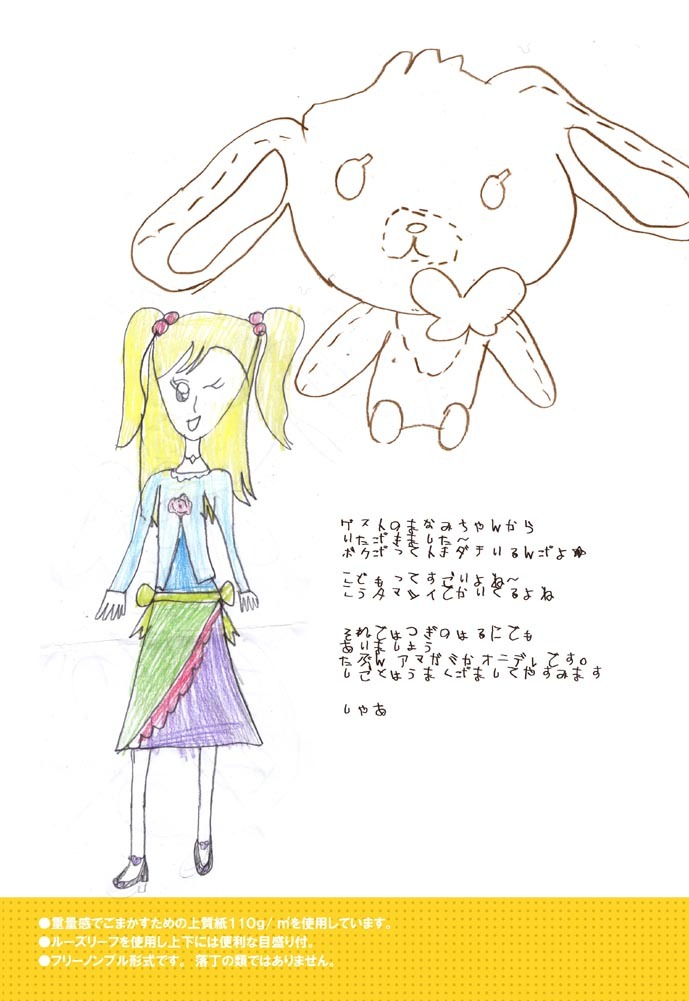 ゲストのまなみちゃんから
いただきました～
ボクだってトモダチいるんだよ★
こどもってすごいよね～
こうタマシイでかいてるよね
それではつぎのはるにでも
あいましょう
たぶん アマガミかオニデレです。
しごとはうまくだましてやすみます
しゃあ
●重量感でごまかすための上質紙110g/㎡を使用しています。
●ルーズリーフを使用し上下には便利な目盛り付。
●フリーノンブル形式です。落丁の類ではありません。